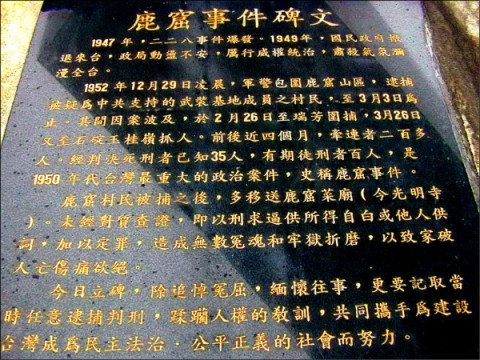 鹿窟事件碑文
1947年，二二八事件爆發。1949年，國民政府撤
退來台，政局動盪不安，厲行威權統治，肅殺氣氛瀰
漫全台。
1952年12月29日凌晨，軍警包圍鹿窟山區，逮捕
被疑為中共支持的武裝基地成員之村民，至3月3日為
止。其間因案波及，於2月26日至瑞芳圍捕，3月26日
又至石碇玉桂嶺抓人。前後近四個月，牽連者二百多
人。經判決死刑者已知35人，有期徒刑者百人，是
1950年代台灣最重大的政治案件，史稱鹿窟事件。
鹿窟村民被捕之後，多移送鹿窟菜廟（今光明寺
）。未經對質查證，即以刑求逼供所得自白或他人供
詞，加以定罪，造成無數冤魂和牢獄折磨，以致家破
人亡傷痛欲絕。
今日立碑，除追悼冤屈，緬懷往事，更要記取當
時任意逮捕判刑，蹂躪人權的教訓，共同攜手為建設
台灣成為民主法治、公平正義的社會而努力。